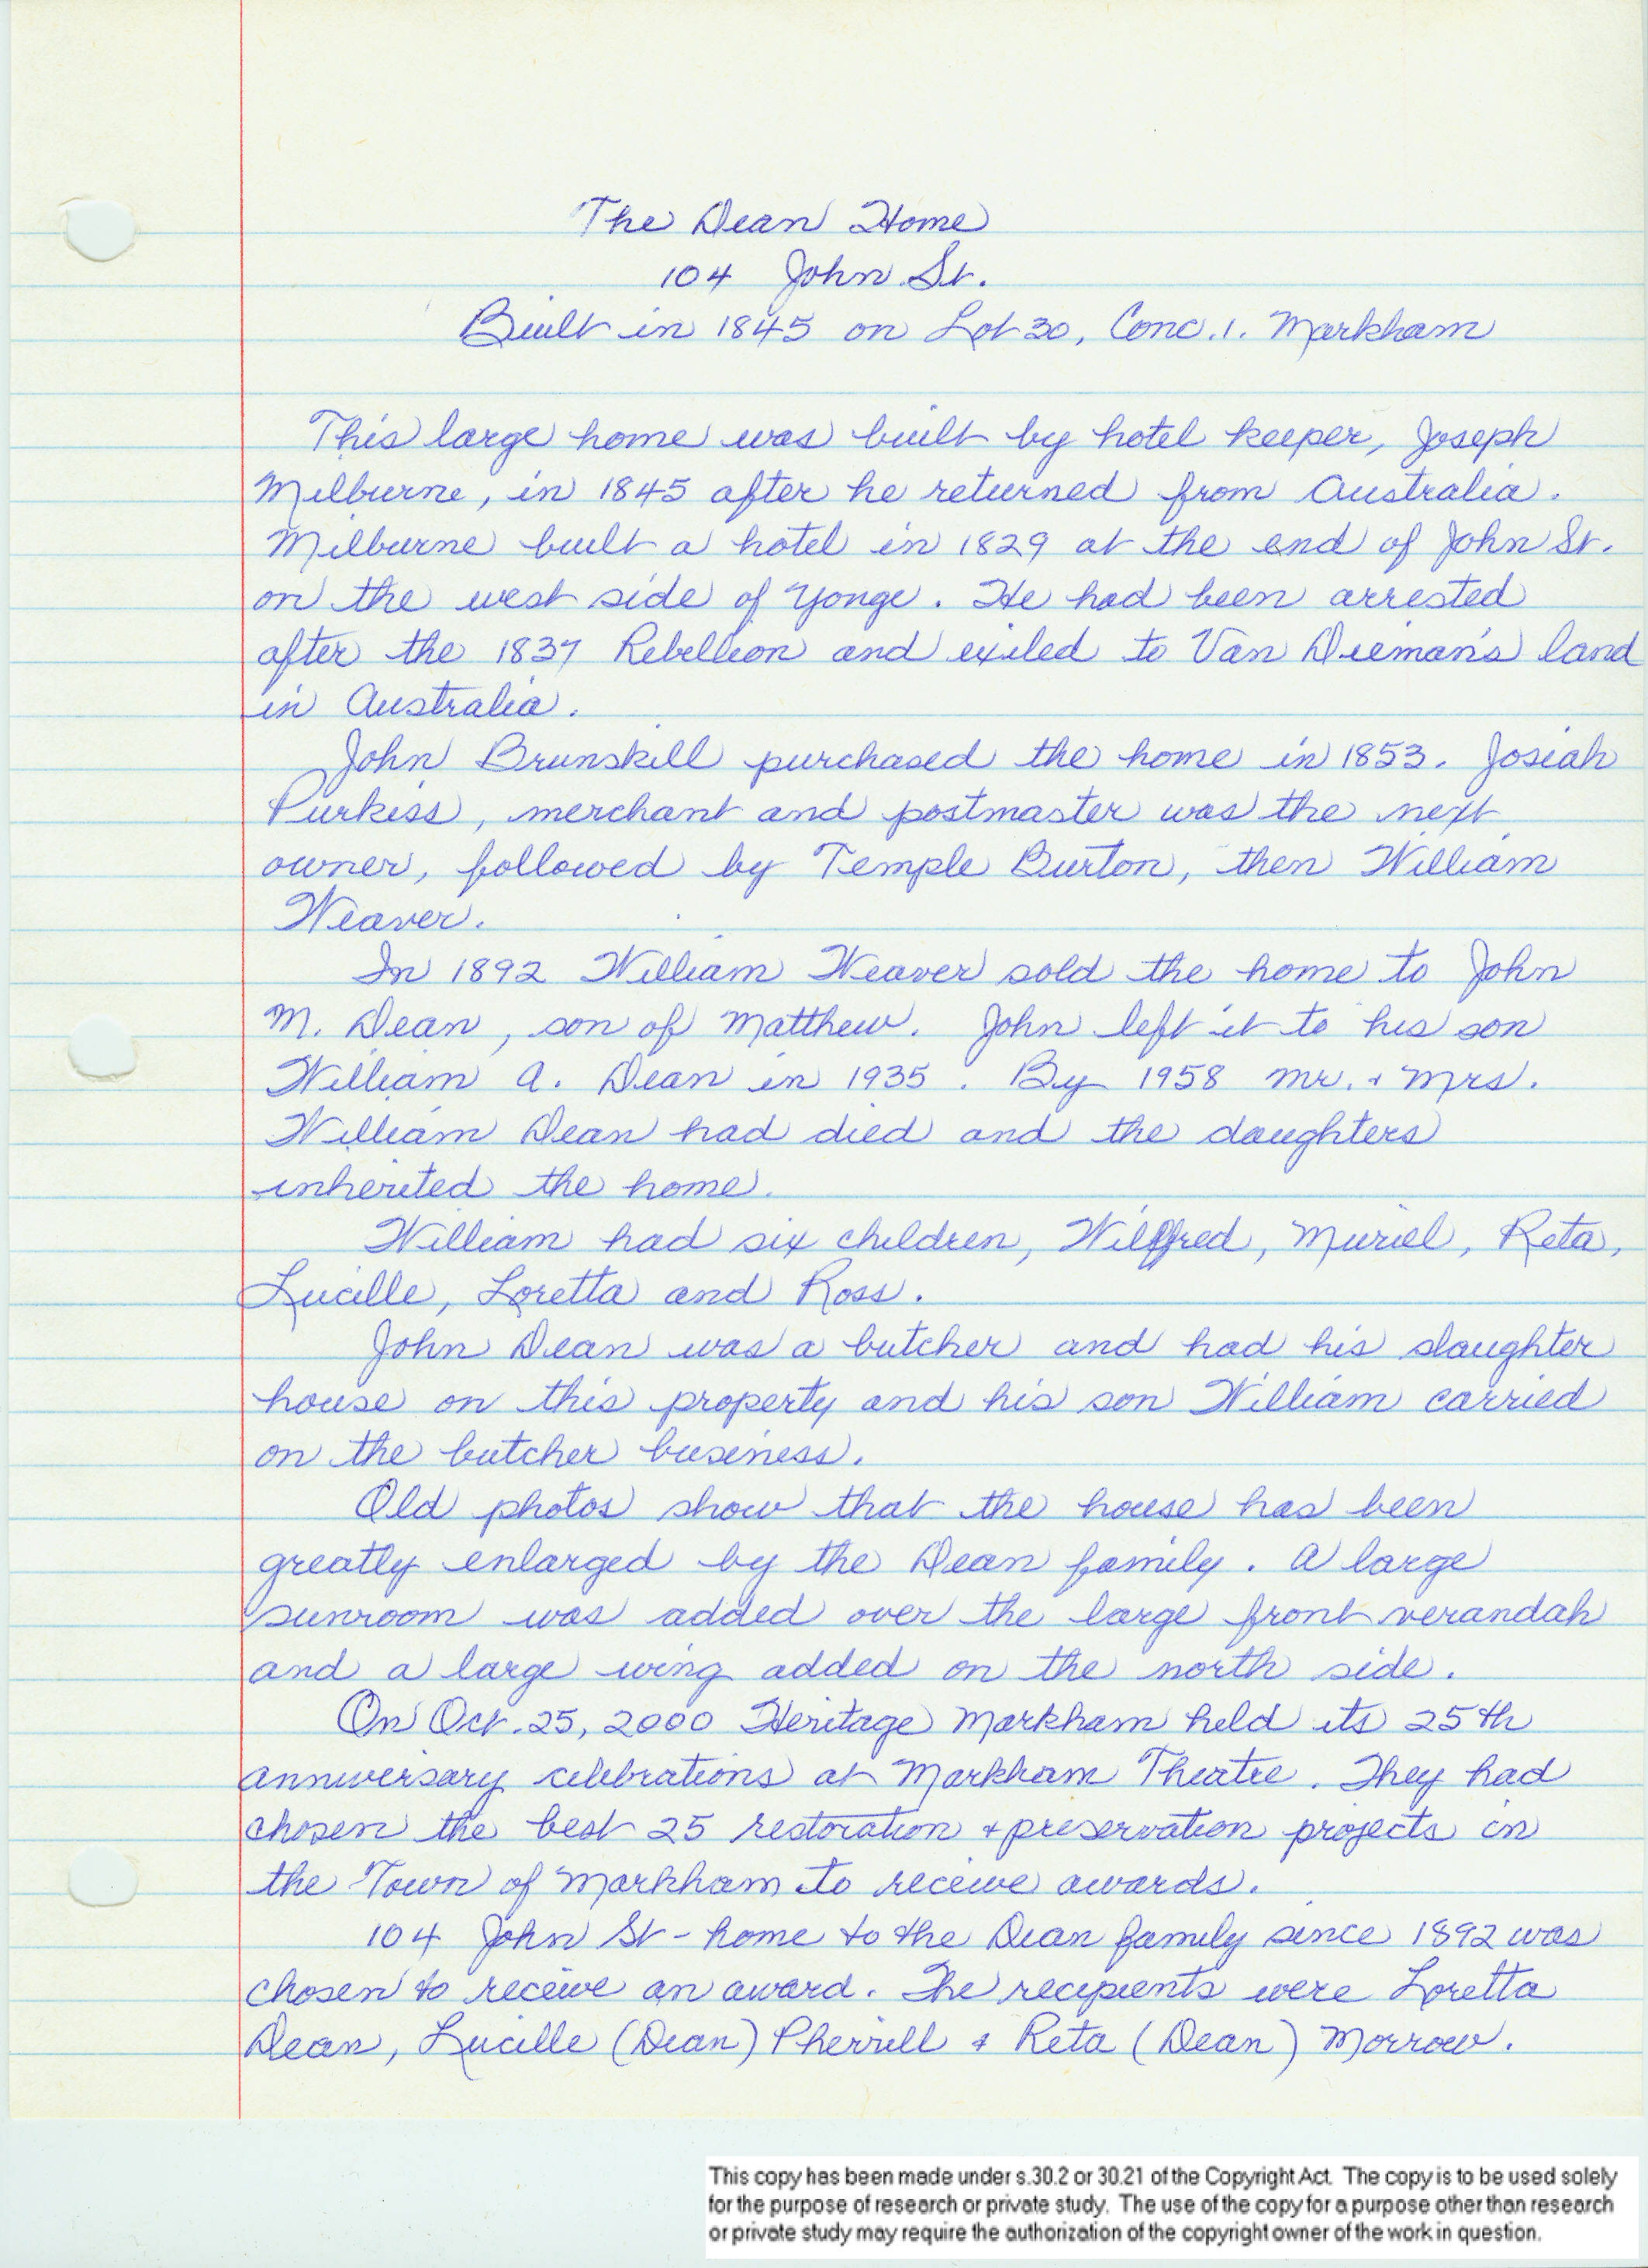 The Dean Home
104 John St.
Built in 1845 on Lot 30, Conc. 1. Markham
This large home was built by hotel keeper, Joseph
Milburne, in 1845 after he returned from Australia.
Milburne built a hotel in 1829 at the end of John St.
on the west side of Yonge. He had been arrested
after the 1837 Rebellion and exiled to Van Dieman's land
in Australia.
John Brunskill purchased the home in 1853. Josiah
Purkiss, merchant and postmaster was the next
owner, followed by Temple Burton, then William
Weaver.
In 1892 William Weaver sold the home to John
M. Dean, son of Matthew. John left it to his son
William A. Dean in 1935. By 1958 Mr. + Mrs.
William Dean had died and the daughters
inherited the home.
William had six children, Wilfred, Muriel, Reta,
Lucille, Loretta and Ross.
John Dean was a butcher and had his slaughter
house on this property and his son William carried
on the butcher business.
Old photos show that the house has been
greatly enlarged by the Dean family. A large
sunroom was added over the large front verandah
and a large wing added on the north side.
On Oct. 25, 2000 Heritage Markham held its 25th
anniversary celebrations at Markham Theatre. They had
chosen the best 25 restoration + preservation projects in
the Town of Markham to receive awards.
104 John St - home to the Dean family since 1892 was
chosen to receive an award. The recipients were Loretta
Dean, Lucille (Dean) Pherrill + Reta (Dean) Morrow.
This copy has been made under s.30.2 or 30.21 of the Copyright Act. The copy is to be used solely
for the purpose of research or private study. The use of the copy for a purpose other than research
or private study may require the authorization of the copyright owner of the work in question.